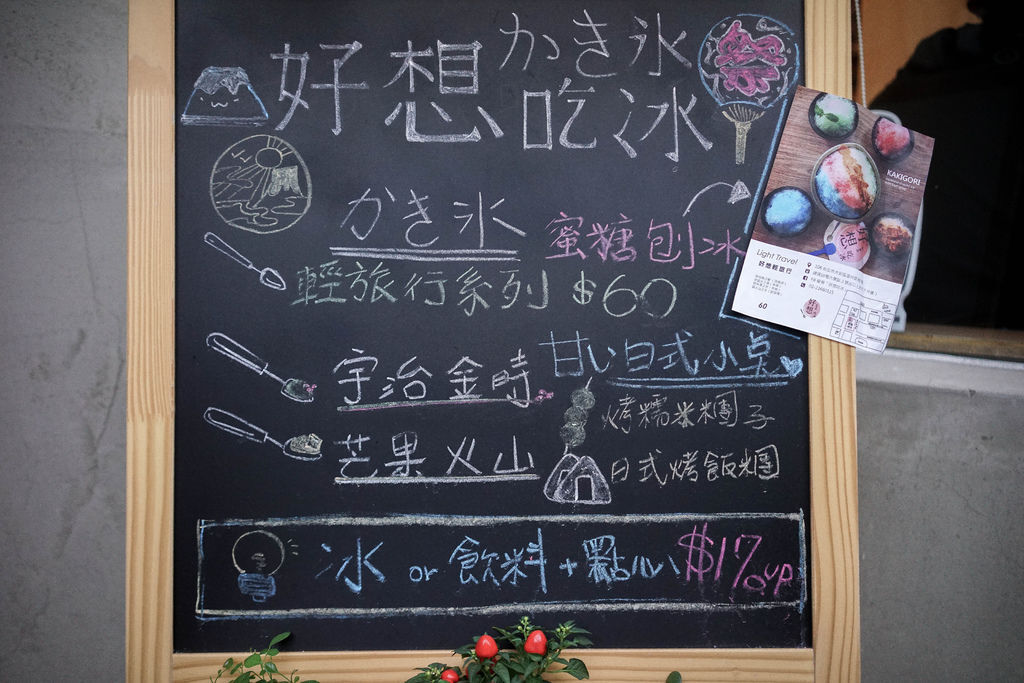 かき氷
好想吃冰
祭
かき氷
蜜糖刨冰
輕旅行系列 $60
宇治金時
芒果火山
甘い日式小点
烤糯米糰子
日式烤飯糰
冰 or 飲料 + 點心 $170up
KAKIGORI
Light Travel
好想輕旅行
60
好想